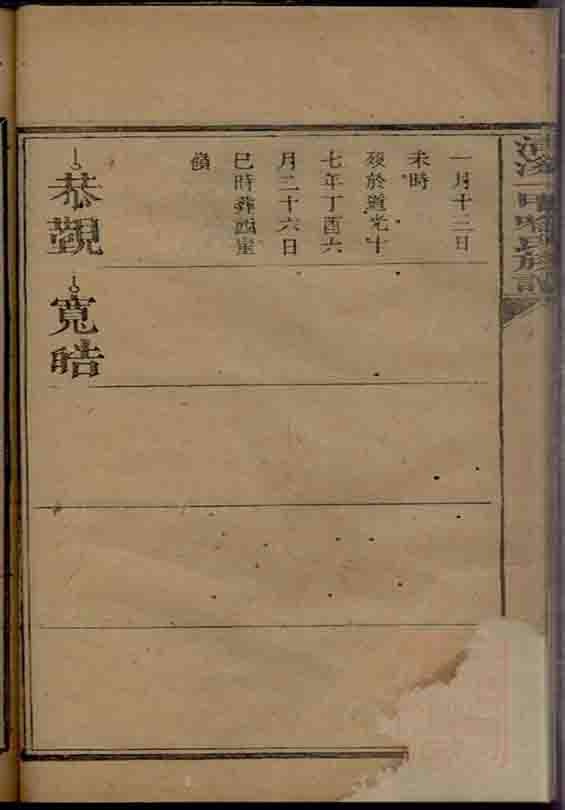 一月十二日
未時
歿於道光十
七年丁酉六
月二十六日
巳時葬西崖
嶺
恭覲
寬皓
族譜